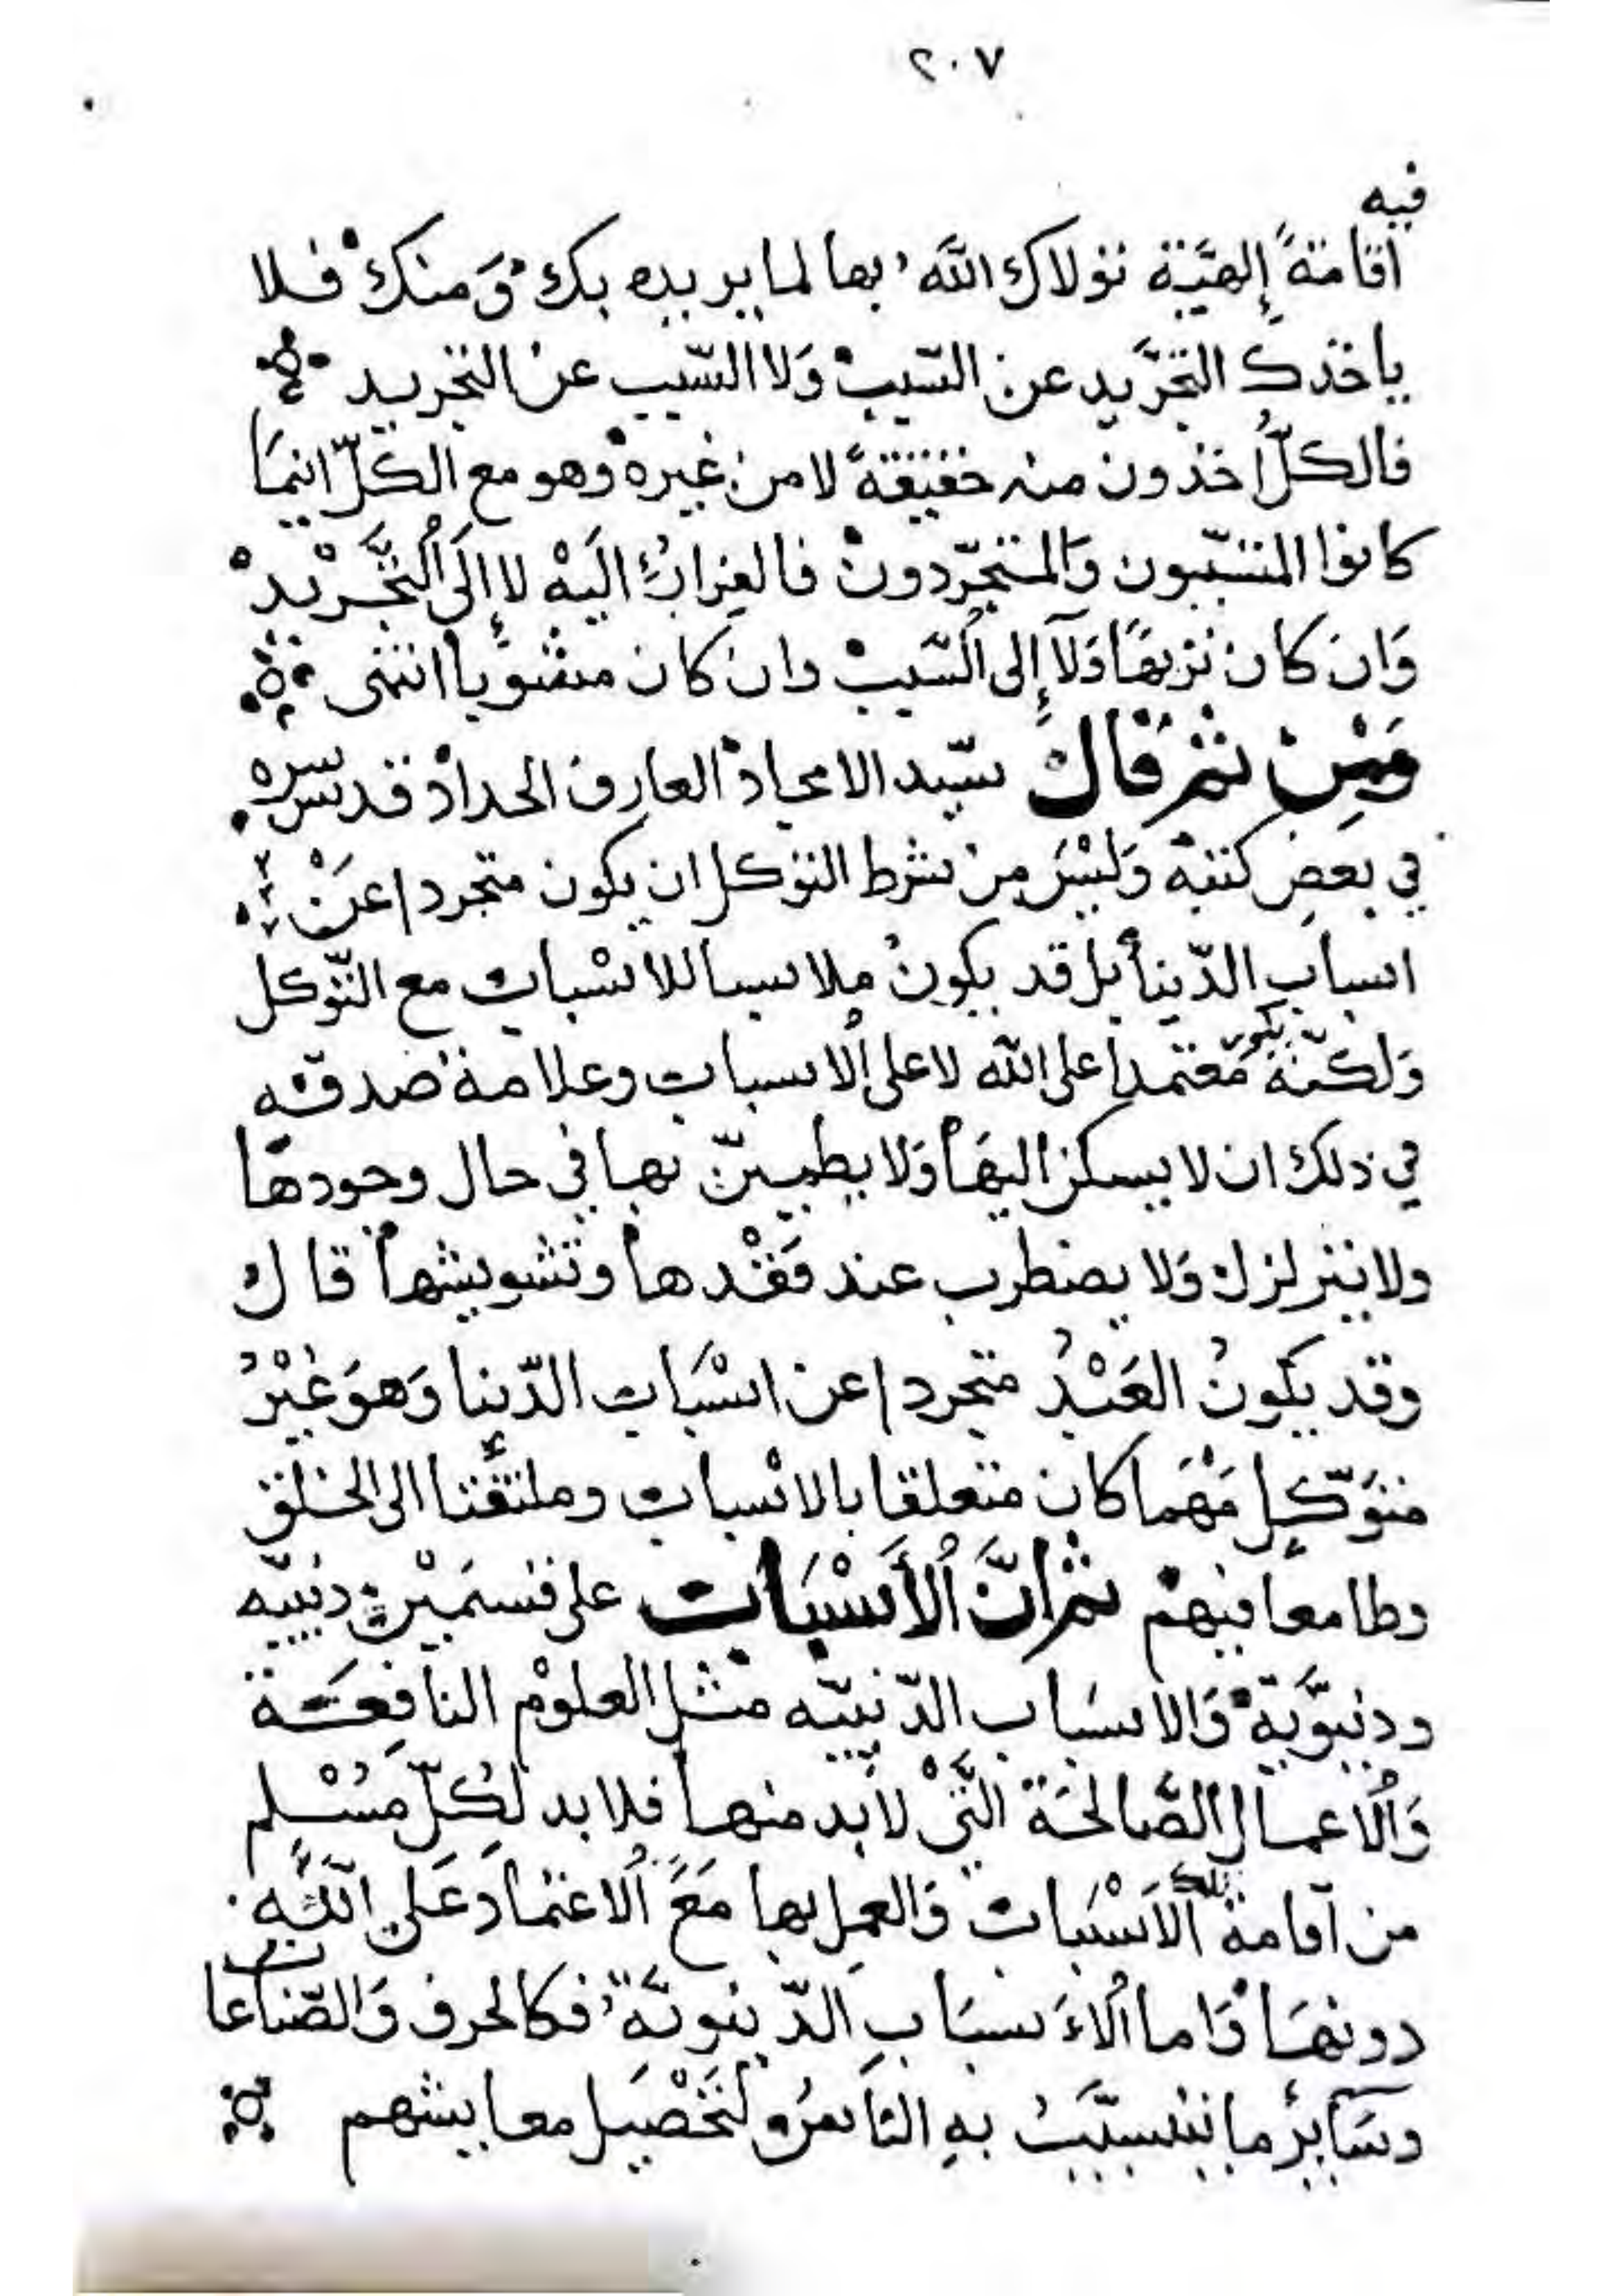 ٢٠٧
فيه
اقامةً إلهيَّة تولاك الله بها لما يريده بك وَمنك فلا
ياخذك التجَّريد عن السّبب وَلا السّبب عن التجريد
فالكلّ اخذون منه حقيقةً لا من غيره وهو مع الكلّ اينمَا
كانوا المتسبّبون وَالمتجرّدون فالفِرارُ اليَهْ لا إلَى اُلتَّجْريد
وَان كان نزيهًا وَلَا إلى اُلسّبب وان كان مشوبا انتهى
وَمِنْ ثم قال سيّد الامجاد العارف الحداد قدس سره
في بعض كتبه وَليْسَ مِن شرط التوكل ان يكون متجردا عَنْ
اسباب الدّنيا بل قد يكونُ ملابسا للاسْباب مع التّوكل
وَلكنّهُ يكون مُعتمدا على الله لا على اُلاسباب وعلامة صدقه
في ذلك ان لا يسكن اليهَا وَلا يطمينّ بها في حال وجودها
ولا يتزلزل وَلا يضطرب عند فَقْدها وتشويشها قال
وقد يكونُ العَبْدُ متجردا عن اسْبَاب الدّنيا وَهوَ غْيرُ
متوَكّلٍ مَهْمَا كان متعلقا بالاسْباب وملتفتا الى الخلق
وطامعا فيهم ثم انَّ اُلأَسْبَاب على قسمَيْن دينيّه
ودنيوَّية وَالاسبَاب الدّينيّه مثل العلوْم النافِعَة
وَاُلاعمال الصَّالحَة التَّيْ لابُد منها فلا بد لكُلّ مُسْلم
من اقامة تلك اَلاَسْبَاب وَالعمل بها مَعَ اُلاعتمَاد عَلى اللَّهِ
دونهَا وَاما اُلاَسبَابِ الدّنيويَّة فكالحرف وَالصّناعات
وسَائِر ما يتسبّبُ بهِ الناسُ لتَحْصيل معايشهم